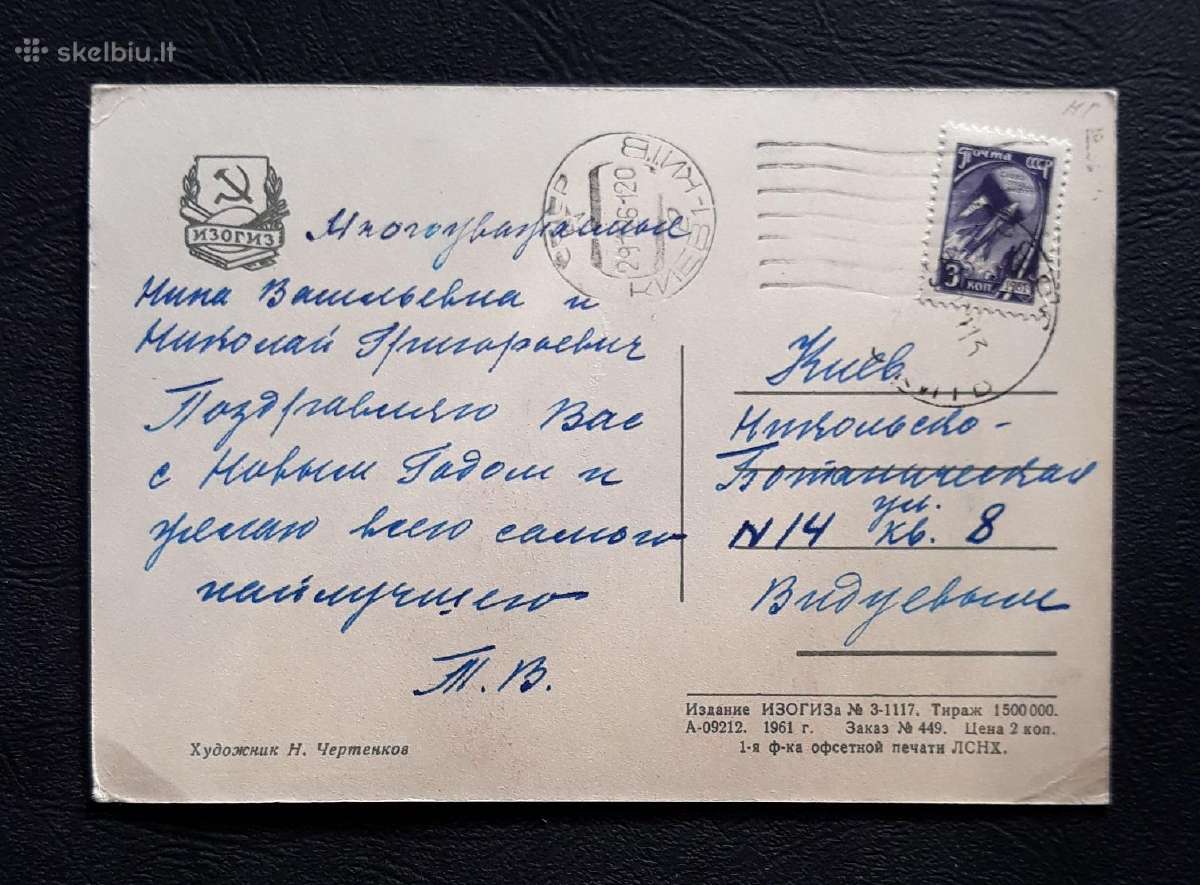 skelbiu.lt
ИЗОГИЗ
Почта СССР
3 коп. 1961
Многоуважаемые
Нина Васильевна и
Николай Григорьевич
Поздравляю Вас
с Новым Годом и
желаю всего самого
найлучшего
Т. В.
Киев
Никольско-
Ботаническая
ул.
N 14 кв. 8
Видуевым
Художник Н. Чертенков
Издание ИЗОГИЗа № 3-1117. Тираж 1500000.
А-09212. 1961 г. Заказ № 449. Цена 2 коп.
1-я ф-ка офсетной печати ЛСНХ.